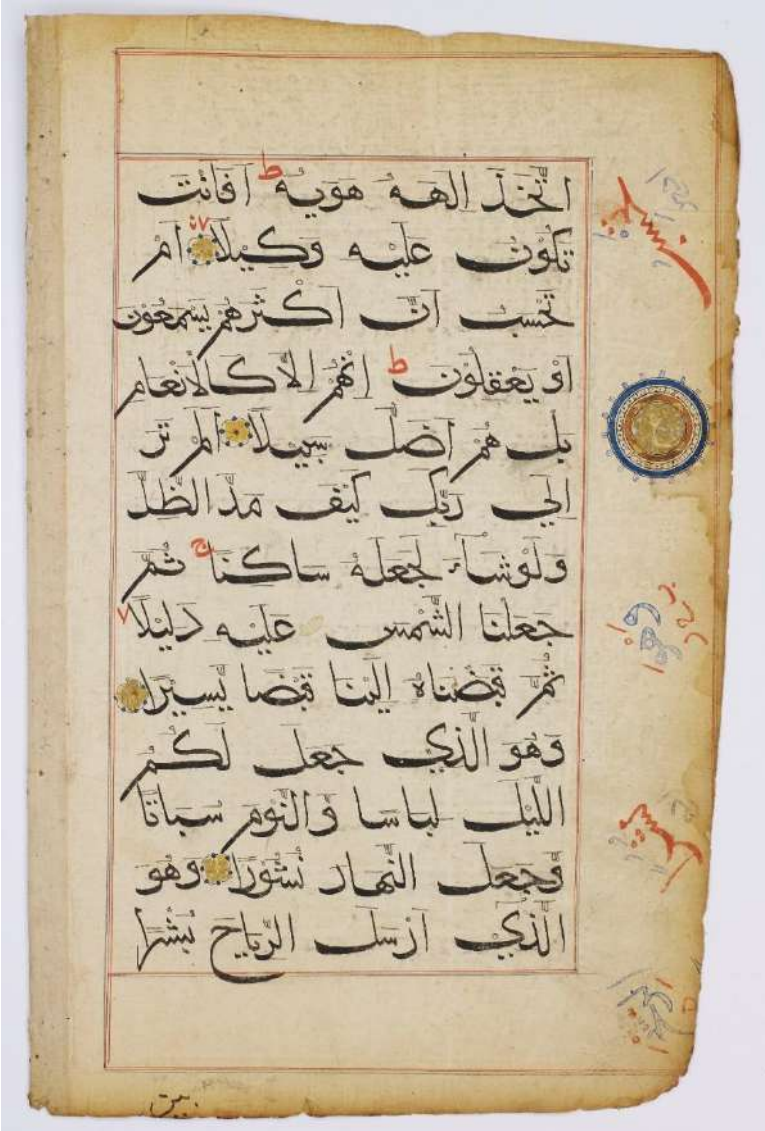 اتَّخَذَ اِلٰهَهُ هَوٰيهُ ط اَفَاَنْتَ
تَكُوْنُ عَلَيْهِ وَكِيْلًا اَمْ
تَحْسَبُ اَنَّ اَكْثَرَهُمْ يَسْمَعُوْنَ
اَوْ يَعْقِلُوْنَ ط اِنْهُمْ اِلَّا كَالْاَنْعَامِ
بَلْ هُمْ اَضَلُّ سَبِيْلًا اَلَمْ تَرَ
اِلٰي رَبِّكَ كَيْفَ مَدَّ الظِّلَّ
وَلَوْ شَاءَ لَجَعَلَهُ سَاكِنًا ج ثُمَّ
جَعَلْنَا الشَّمْسَ عَلَيْهِ دَلِيْلًا
ثُمَّ قَبَضْنَاهُ اِلَيْنَا قَبْضًا يَّسِيْرًا
وَهُوَ الَّذِيْ جَعَلَ لَكُمُ
اللَّيْلَ لِبَاسًا وَّالنَّوْمَ سُبَاتًا
وَّجَعَلَ النَّهَارَ نُشُوْرًا وَهُوَ
الَّذِيْ اَرْسَلَ الرِّيَاحَ بُشْرًا